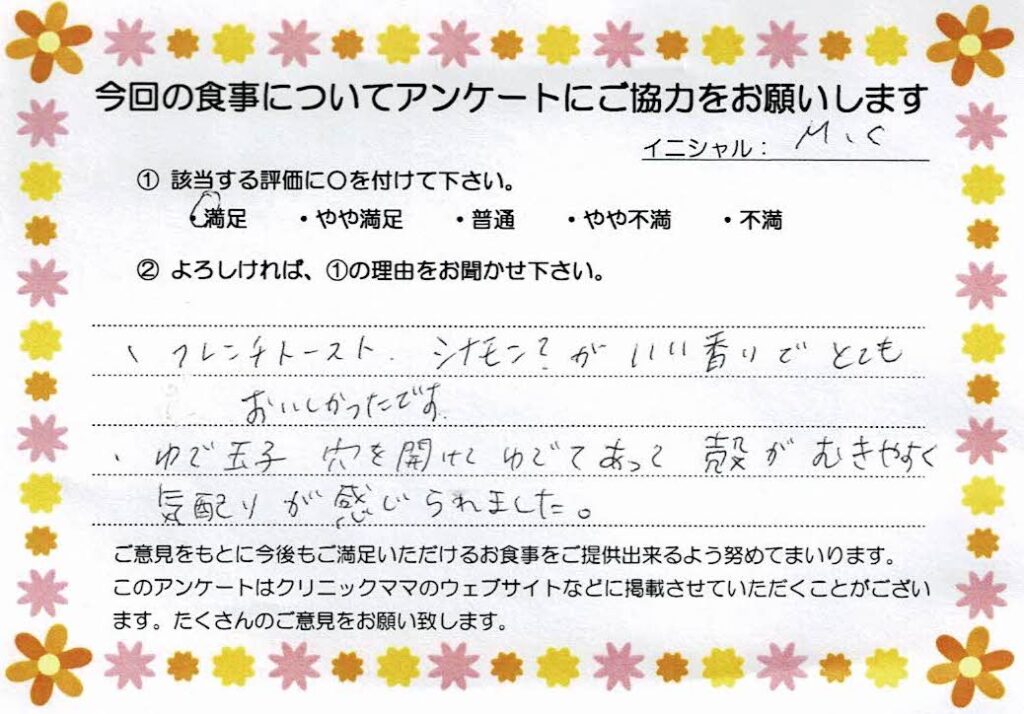 今回の食事についてアンケートにご協力をお願いします
イニシャル： M.C
① 該当する評価に〇を付けて下さい。
・満足 ・やや満足 ・普通 ・やや不満 ・不満
② よろしければ、①の理由をお聞かせ下さい。
、フレンチトースト．シナモン？がいい香りでとても
おいしかったです．
、ゆで玉子 穴を開けてゆでてあって 殻がむきやすく
気配りが感じられました。
ご意見をもとに今後もご満足いただけるお食事をご提供出来るよう努めてまいります。
このアンケートはクリニックママのウェブサイトなどに掲載させていただくことがござい
ます。たくさんのご意見をお願い致します。